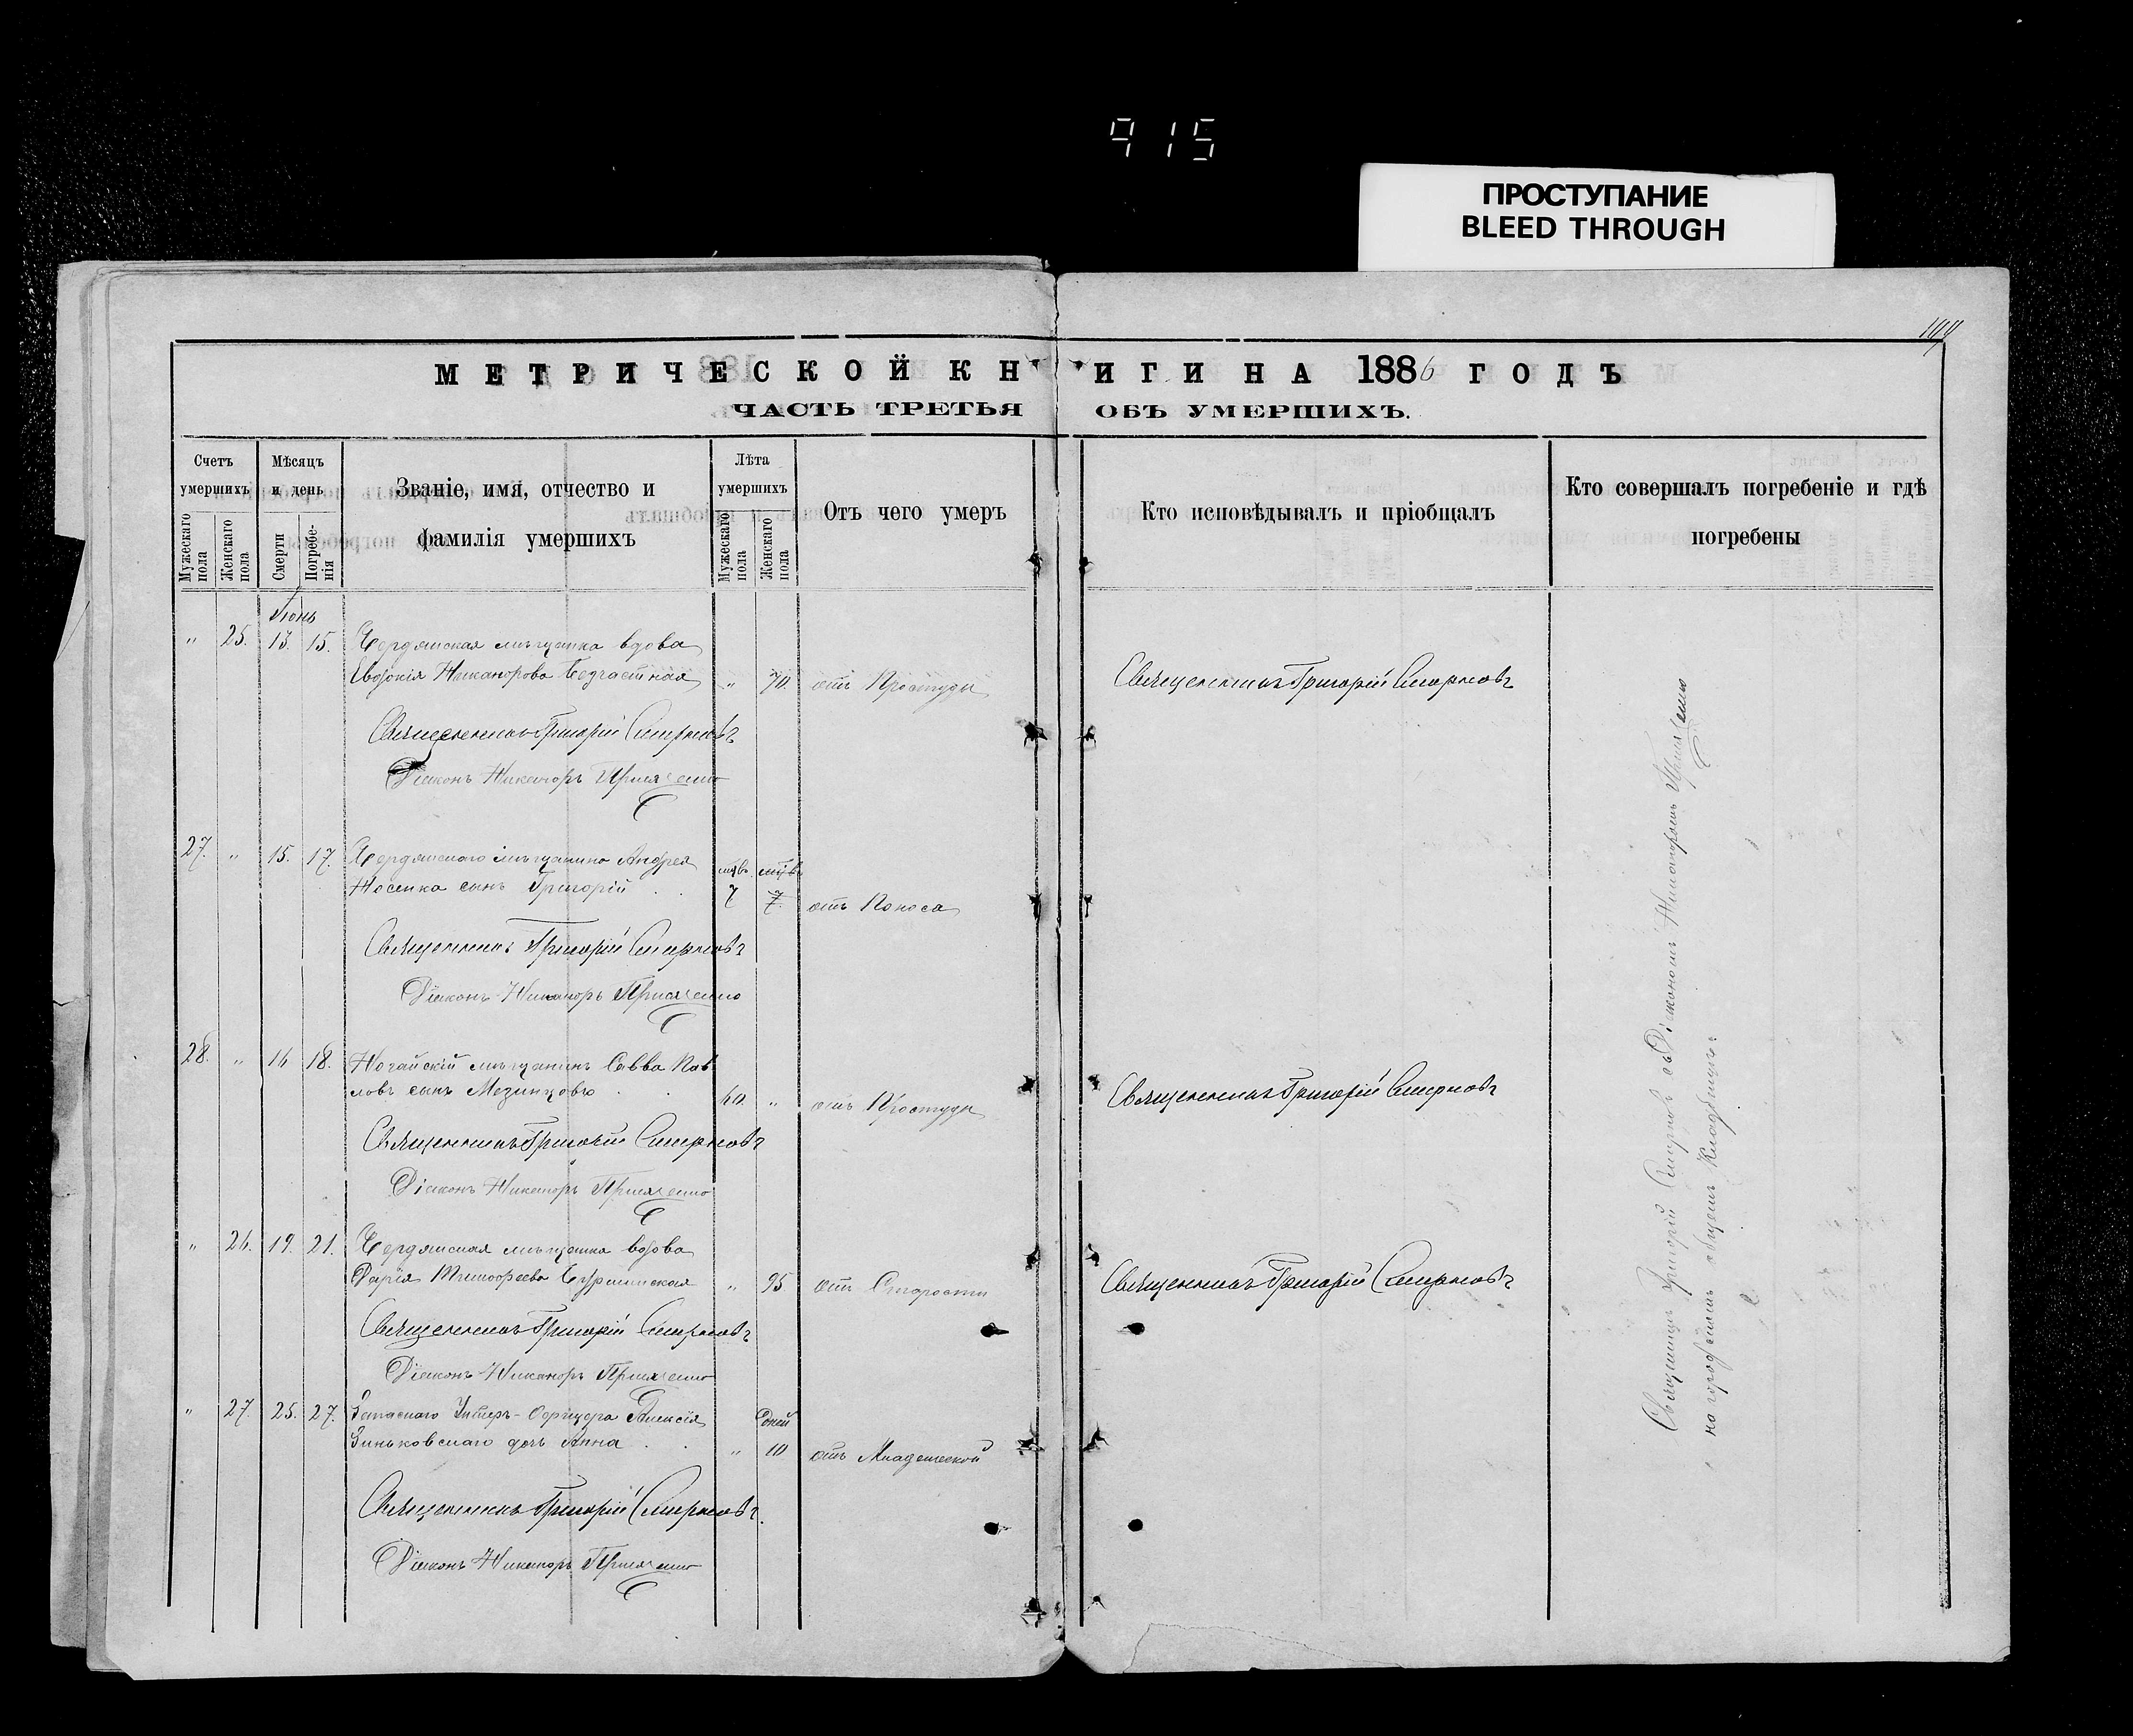 915
ПРОСТУПАНИЕ
BLEED THROUGH
МЕТРИЧЕСКОЙ КНИГИ НА 1886 ГОДЪ
ЧАСТЬ ТРЕТЬЯ ОБЪ УМЕРШИХЪ.
Счетъ умершихъ
Мужескаго пола
Женскаго пола
Мѣсяцъ и день
Смерти
Погребенія
Званіе, имя, отчество и фамилія умершихъ
Лѣта умершихъ
Мужескаго пола
Женскаго пола
Отъ чего умеръ
Кто исповѣдывалъ и пріобщалъ
Кто совершалъ погребеніе и гдѣ погребены
Іюнь
" 25. 13. 15. Бердянская мѣщанка вдова
Евдокія Никанорова Безчастная " 70. отъ Простуды Священникъ Григорій Смирновъ
Священникъ Григорій Смирновъ
Діаконъ Никаноръ
27. " 15. 17. Бердянскаго мѣщанина Андрея
Носенка сынъ Григорій 7 7 отъ Поноса
Священникъ Григорій Смирновъ
Діаконъ Никаноръ
28. " 16 18. Ногайскій мѣщанинъ Савва Пав
ловъ сынъ 60. " отъ Простуды Священникъ Григорій Смирновъ
Священникъ Григорій Смирновъ
Діаконъ Никаноръ
" 26. 19. 21. Бердянская мѣщанка вдова
Дарія Тимофеева " 95. отъ Старости Священникъ Григорій Смирновъ
Священникъ Григорій Смирновъ
Діаконъ Никаноръ
" 27. 25. 27. Запаснаго Унтеръ-Офицера Алексія дней
Зиньковскаго дочь Анна " 10 отъ Младенческой
Священникъ Григорій Смирновъ.
Діаконъ Никаноръ
Священникъ Григорій Смирновъ съ Діакономъ Никаноромъ
на городскомъ общемъ Кладбищѣ